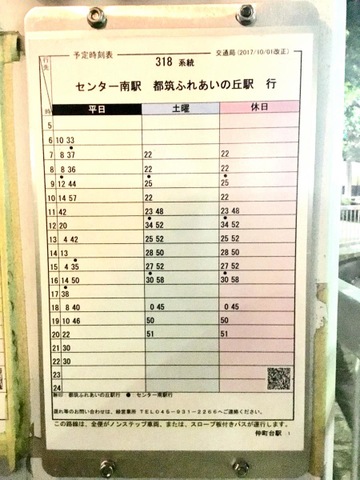 予定時刻表
318 系統
交通局(2017/10/01改正)
行先
センター南駅 都筑ふれあいの丘駅 行
時
平日 土曜 休日
5
6 10 33
7 8 37 22 22
8 8 36 22 22
9 12 44 25 25
10 14 57 22 22
11 42 23 48 23 48
12 20 34 52 34 52
13 4 42 25 52 25 52
14 13 28 50 28 50
15 4 35 27 52 27 52
16 14 50 30 58 30 58
17 38
18 8 40 0 45 0 45
19 10 46 50 50
20 22 51 51
21 30
22 30
23
24
無印：都筑ふれあいの丘駅行 ●：センター南駅行
遅れ等のお問い合わせは、緑営業所 TEL045-931-2266へご連絡ください。
この路線は、全便がノンステップ車両、または、スロープ板付きバスが運行します。
仲町台駅 1